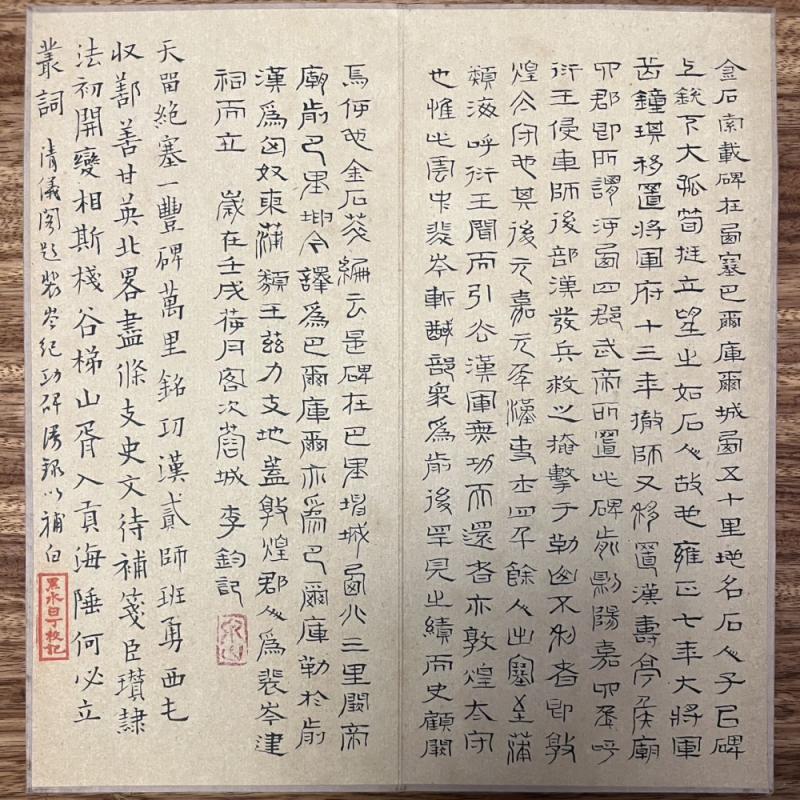 金石索載碑在西塞巴爾庫爾城西五十里地名石人子以碑
上銳下大孤筍挺立望之如石人故也雍正七年大將軍
岳鐘琪移置將軍府十三年撤師又移置漢壽亭侯廟
郡即所謂河西四郡武帝所置此碑前刻陽嘉四年呼
衍王侵車師後部漢發兵救之掩擊于勒山不利者即敦
煌太守也其後元嘉元年漢吏士四千餘人出塞至蒲
類海呼衍王聞而引去漢軍無功而還者亦敦煌太守
也惟此雲中裴岑斬馘部衆爲前後罕見之績而史顧闕
焉何也金石萃編云是碑在巴里坤城西北三里關帝
廟前巴里坤今譯爲巴爾庫爾亦爲巴爾庫勒於前
漢爲匈奴東蒲類王茲力支地蓋敦煌郡人爲裴岑建
祠而立 歲在壬戌荷月客次蓉城 李鈞記
天留絕塞一豐碑萬里銘功漢貳師班勇西屯
收鄯善甘英北略盡條支史文待補箋臣瓚隸
法初開變相斯棧谷梯山胥入貢海陲何必立
叢詞 清儀閣題裴岑紀功碑詩錄以補白
黑水白丁校記